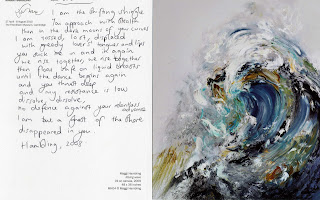 I am the shifting shingle
you approach with stealth
then in the dark moons of you curves
I am tossed, lost, displaced
with greedy lovers' tongues and lips
you suck me in and in again
we rise together, we rise together
then float on liquid breasts
until the dance begins again
and you thrust deep
and my resistance is low
dissolve, dissolve,
no defence against your relentless
I am but a ghost of the shore
disappeared in you
Hambling, 2008
Maggi Hambling